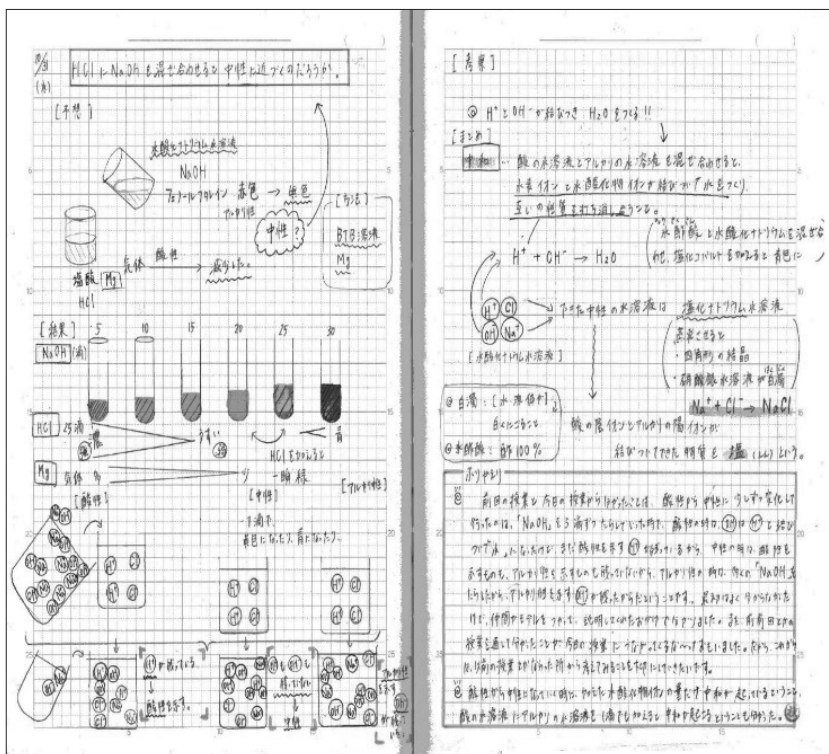 10/31
(水)
HClにNaOHを混ぜ合わせると中性に近づくのだろうか。
[予想]
水酸化ナトリウム水溶液
NaOH
フェノールフタレイン 赤色 → 無色
アルカリ性
中性?
[方法]
BTB溶液
Mg
塩酸 Mg 気体 酸性 → 減少した。
HCl
[結果] 5 10 15 20 25 30
NaOH (滴)
HCl 25滴
濃 うすい 青
HClを加えると
一瞬緑
Mg 気体 多 少
[酸性] [中性] [アルカリ性]
一滴で、
黄色になったり、青になったり。
H⁺が残っている
酸性を示す。
中性
[考察]
◎ H⁺とOH⁻が結びつき H₂Oをつくる!!
[まとめ]
中和 … 酸の水溶液とアルカリの水溶液を混ぜ合わせると、
水素イオンと水酸化物イオンが結びついて水をつくり、
互いの性質を打ち消し合うこと。
氷酢酸と水酸化ナトリウムを混ぜ合
わせ、塩化コバルトを加えると青色に
H⁺ + OH⁻ → H₂O
H⁺ Cl⁻
OH⁻ Na⁺
できた中性の水溶液は 塩化ナトリウム水溶液
[水酸化ナトリウム水溶液]
蒸発させると
・四角形の結晶
・硝酸銀水溶液が白濁
Na⁺ + Cl⁻ → NaCl
◎白濁:
白くにごること
◎氷酢酸:酢100%
酸の陰イオンとアルカリの陽イオンが
結びついてできた物質を 塩(えん)という。
ふりかえり
前回の授業と今日の授業から分かったことは、酸性から中性に少しずつ変化して
行ったのは、「NaOH」を5滴ずつたらしていった時で、酸性の時は、OH⁻はH⁺と結び
ついて「水」になったけど、まだ酸性を示すH⁺が残っているから、中性の時は、酸性を
示すものも、アルカリ性を示すものも残っていないから、アルカリ性の時は、多くの「NaOH」を
たらしたから、アルカリ性を示すOH⁻が残ったからだということです。最初はよく分からなかった
けど、仲間がモデルをつかって、説明してくれたおかげで分かりました。また、前前回と前の
授業を通して分かったことが今日の授業につながってくるな〜っておもいました。だから、これから
も、以前の授業とかならった所から考えてみることも大切にしていきたいです。
酸性から中性になっていく時は、加えた水酸化物イオンの量だけ中和が起こっているということ、
酸の水溶液にアルカリの水溶液を1滴でも加えると中和が起こるということも分かった。